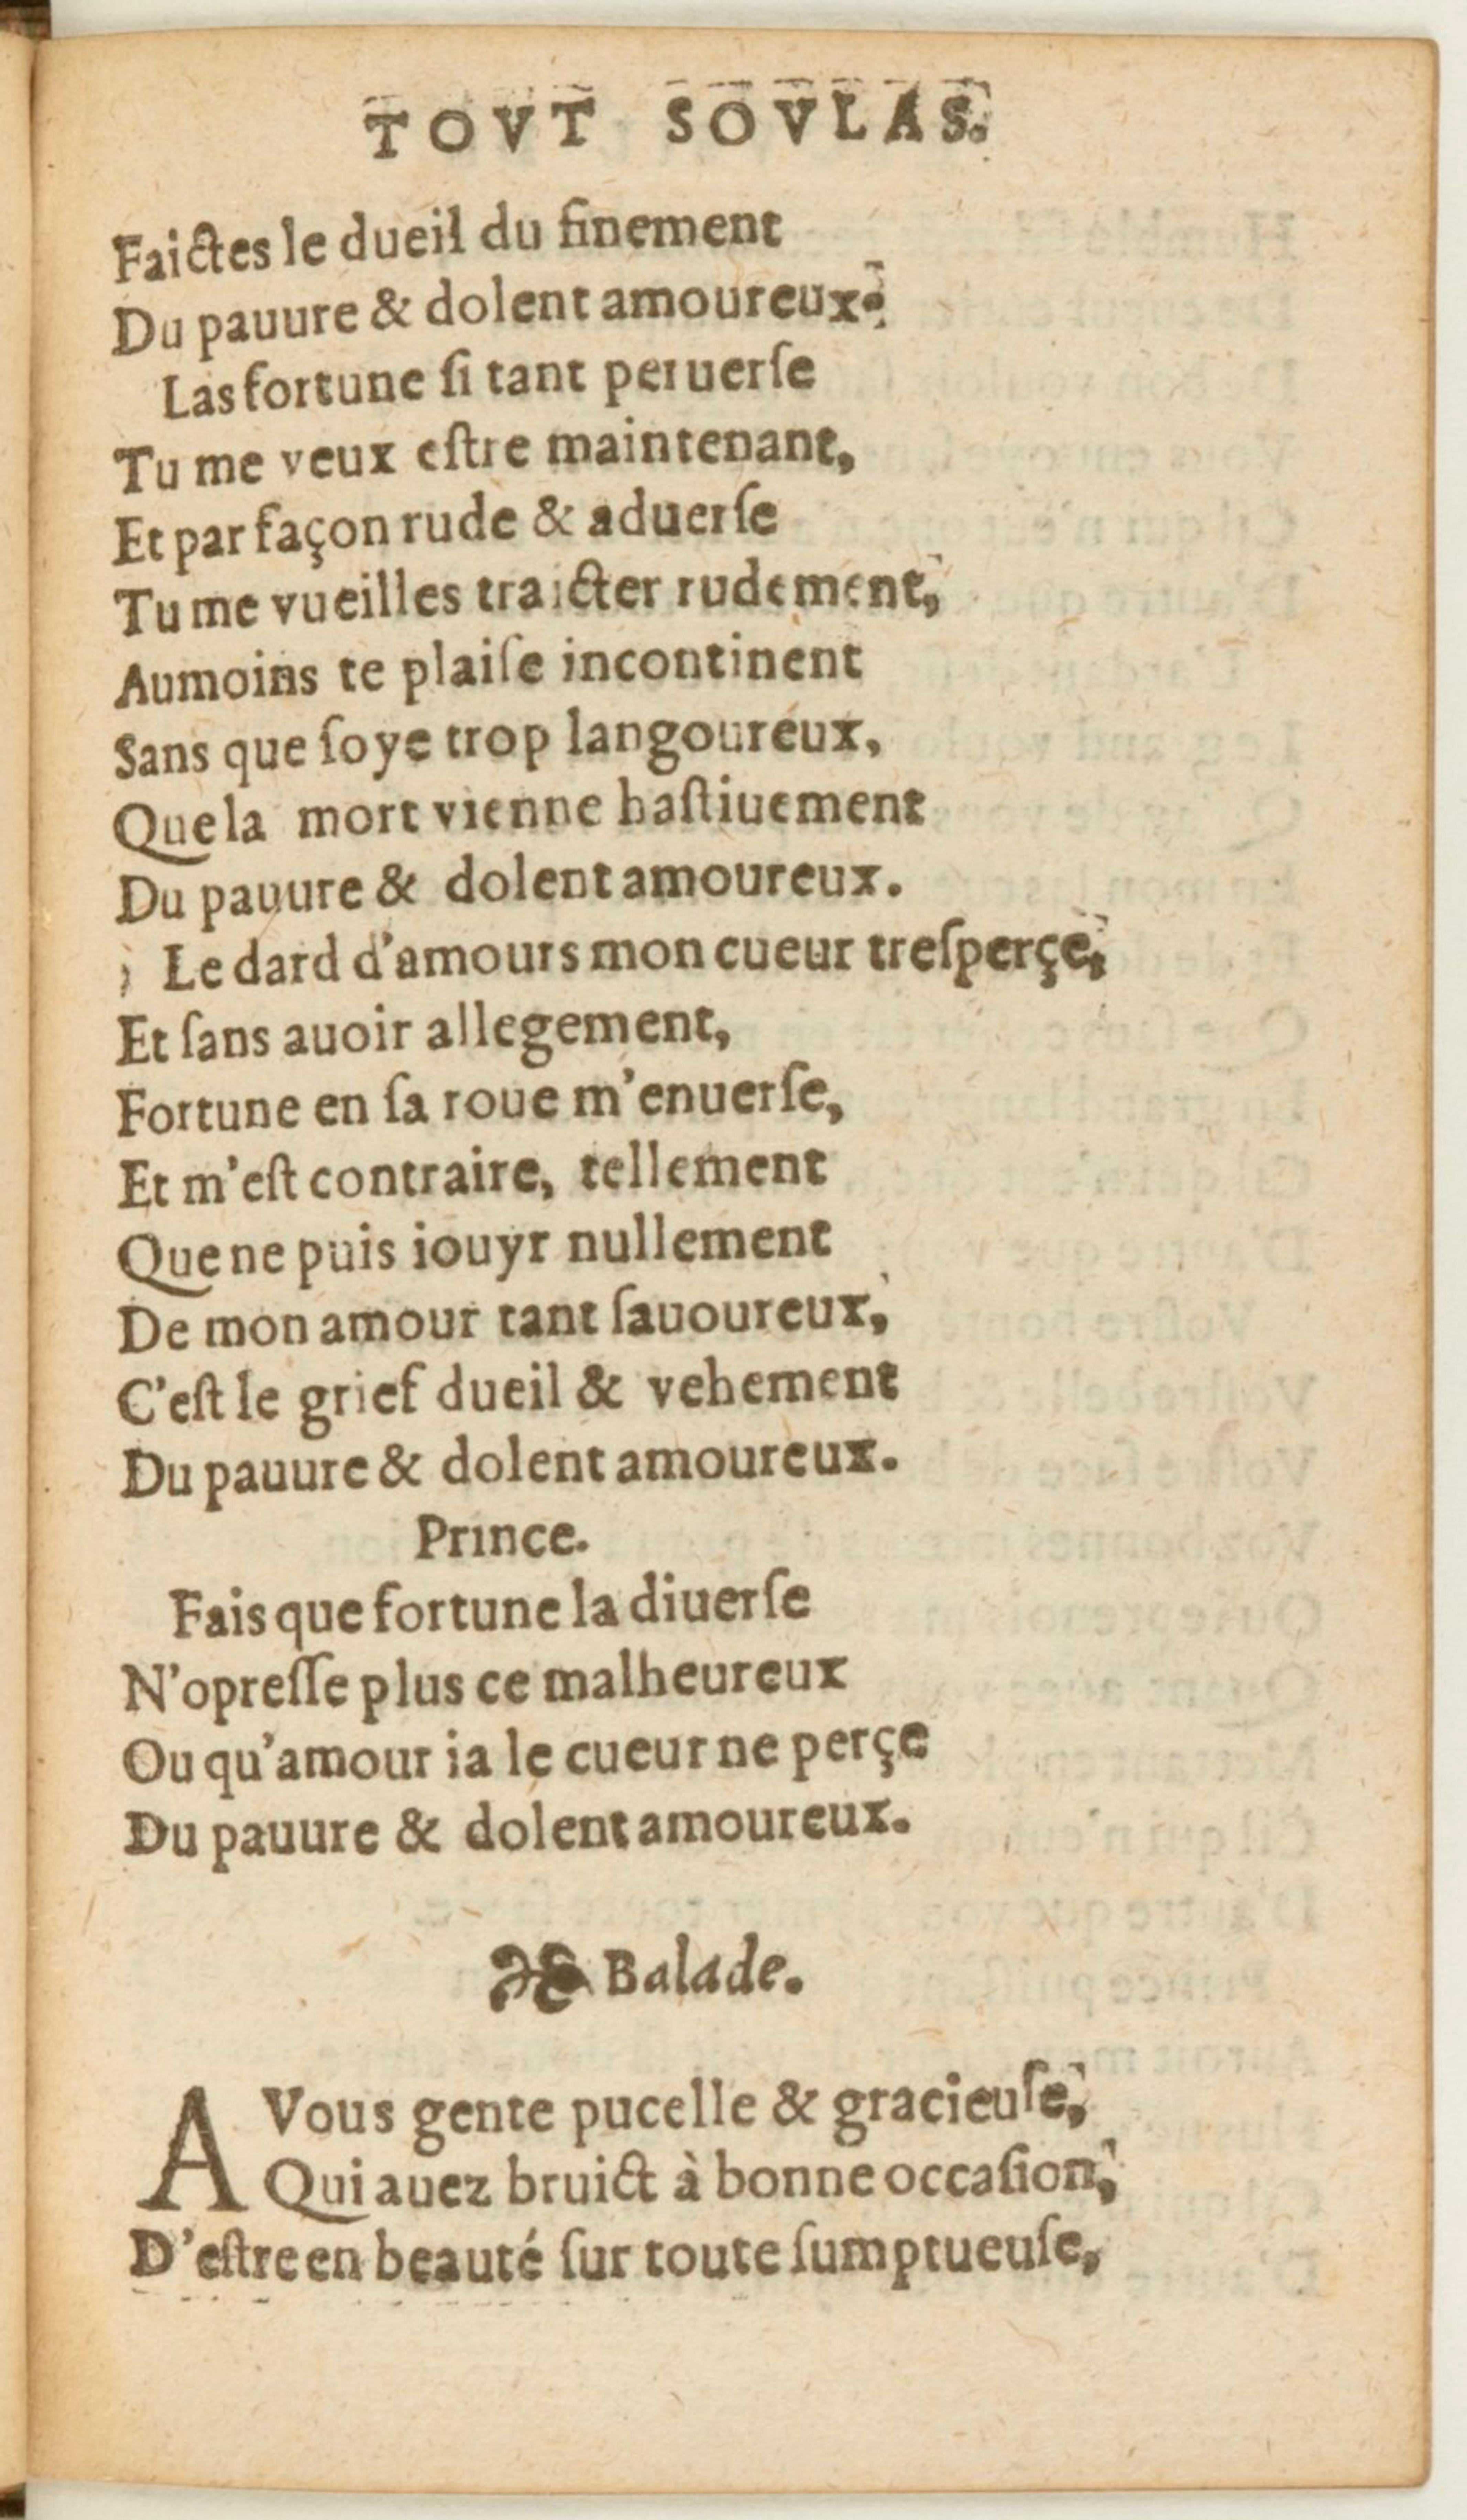 TOVT SOVLAS.
Faictes le dueil du finement
Du pauure & dolent amoureux.
Las fortune ſi tant peruerſe
Tu me veux eſtre maintenant,
Et par façon rude & aduerſe
Tu me vueilles traicter rudement,
Aumoins te plaiſe incontinent
Sans que ſoye trop langoureux,
Que la mort vienne haſtiuement
Du pauure & dolent amoureux.
Le dard d'amours mon cueur treſperçe,
Et ſans auoir allegement,
Fortune en ſa roue m'enuerſe,
Et m'eſt contraire, tellement
Que ne puis iouyr nullement
De mon amour tant ſauoureux,
C'eſt le grief dueil & vehement
Du pauure & dolent amoureux.
Prince.
Fais que fortune la diuerſe
N'opreſſe plus ce malheureux
Ou qu'amour ia le cueur ne perçe
Du pauure & dolent amoureux.
Balade.
A Vous gente pucelle & gracieuſe,
Qui auez bruict à bonne occaſion,
D'eſtre en beauté ſur toute ſumptueuſe,